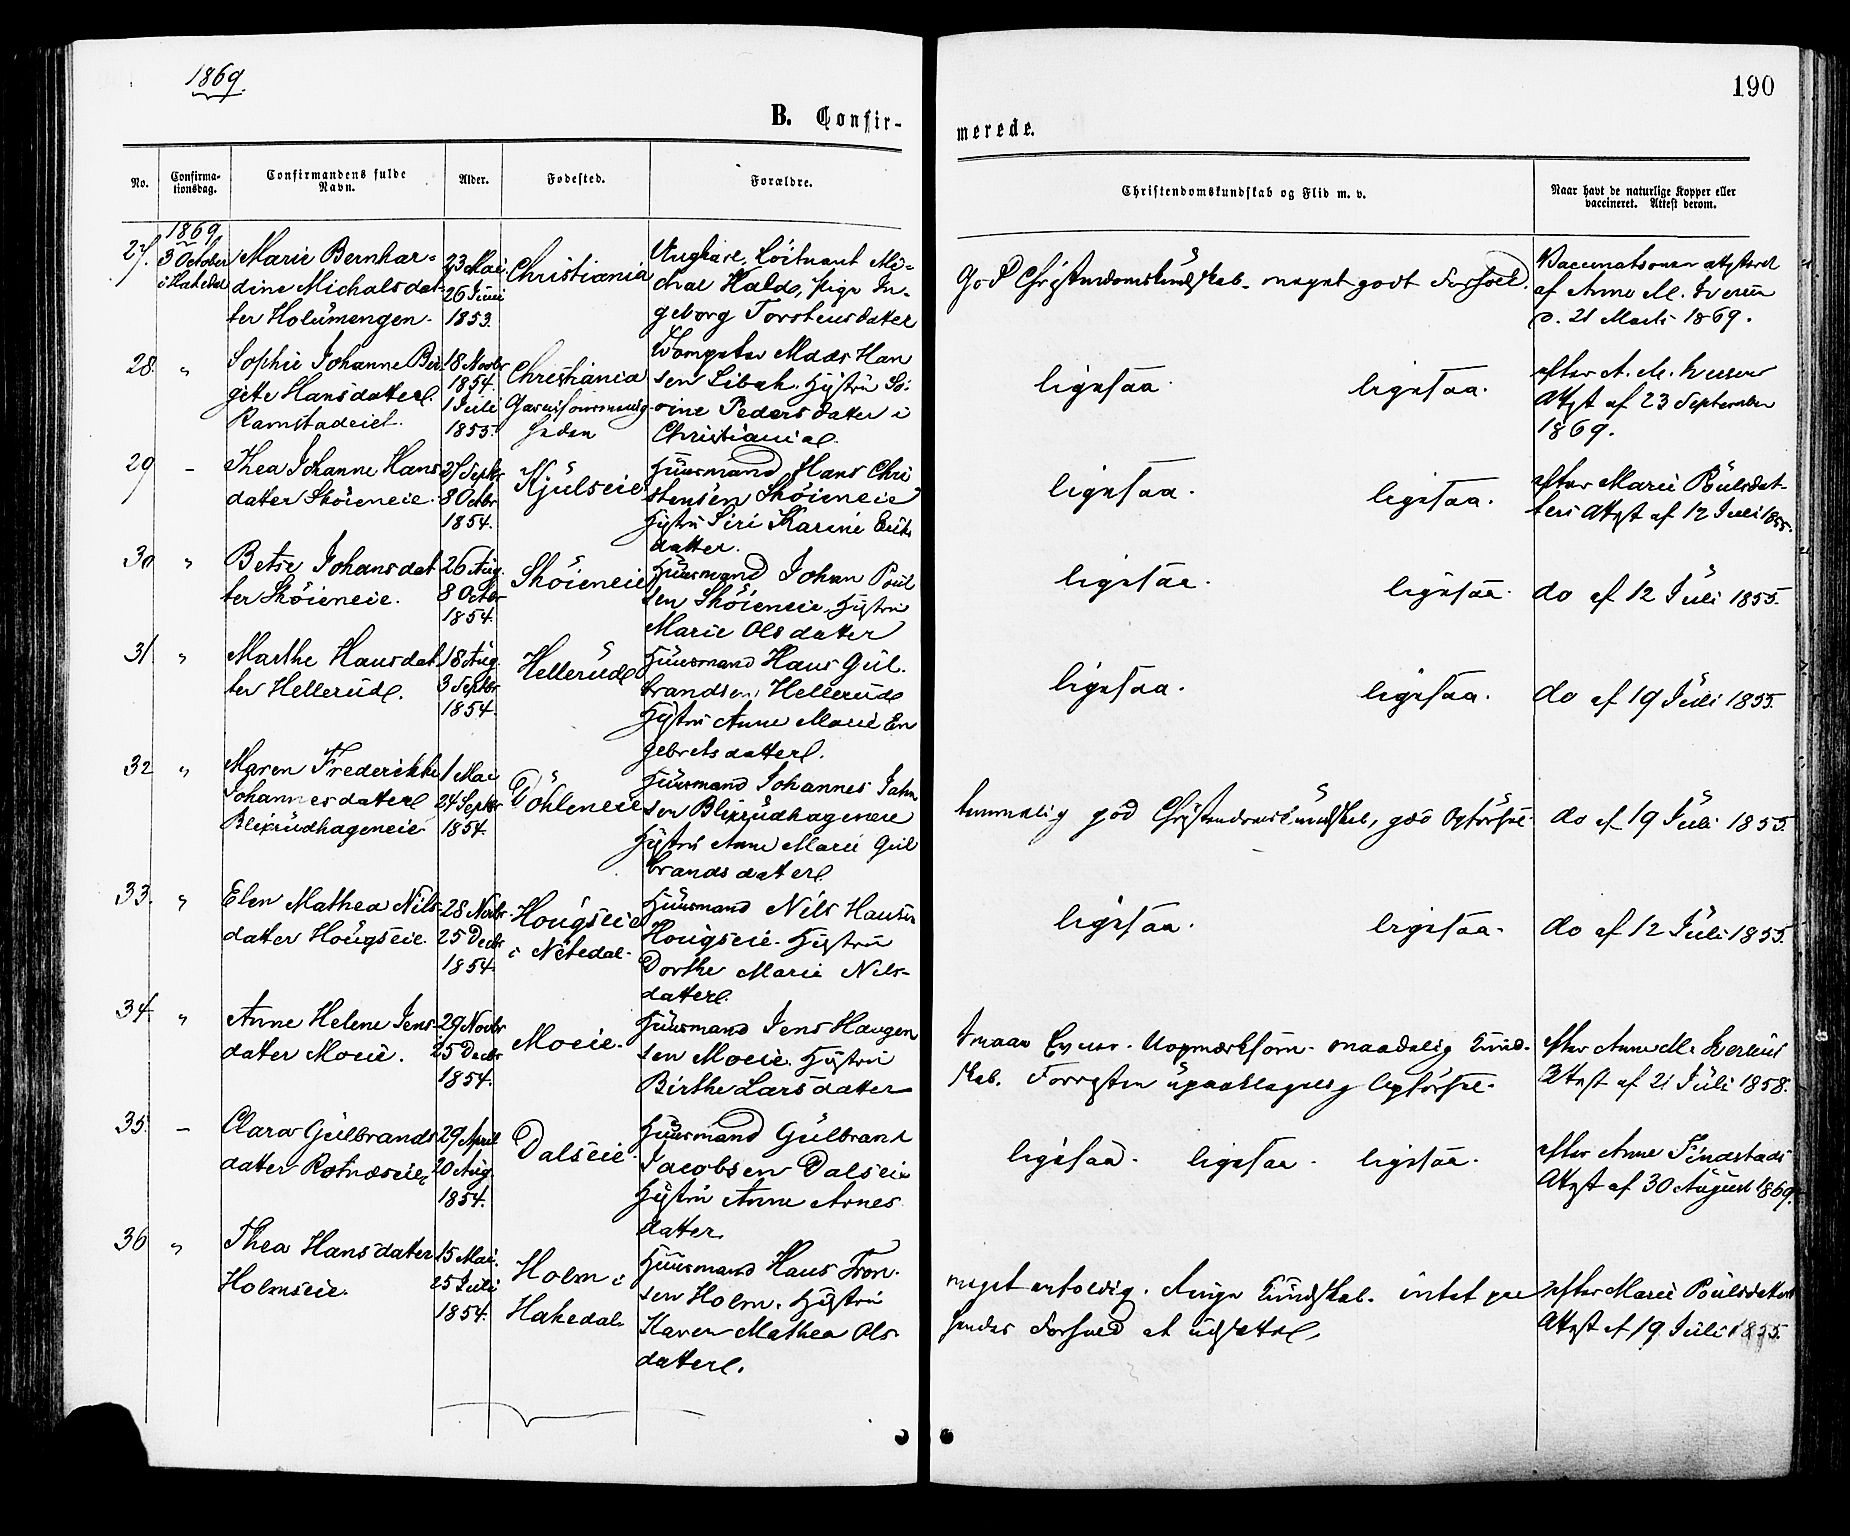 1869.
190
B. Confir-
merede.
No.
Confirma-
tionsdag.
Confirmandens fulde
Navn.
Alder.
Fødested.
Forældre.
Christendomskundskab og Flid m. v.
Naar havt de naturlige Kopper eller
vaccineret. Attest derom.
27.
1869
3 October
i Hakedal
Marie Bernhar-
dine Michalsdat-
ter Holümengen.
23 Mai
26 Juni
1853.
Christiania
Ungkarl, Löitnant Mi-
chal Halds, pige In-
geborg Torstensdatter
God Christendomskundskab. meget godt Forhold.
Vaccinationen attesteret
af Anne M.
d. 21 Marts 1869.
28. "
Sophie Johanne Bir-
gite Hansdatter
Ramstadeiet.
18 Novbr
1854.
1 Juli
1855.
Christiania
Garnisonsmenig-
heden
Mads Han
sen Hustru
Pedersdatter i
Christiania.
ligesaa.
ligesaa.
efter A. M.
Attest af 23 September
1869.
29 -
Thea Johanne Hans
datter Sköieneie.
27 Septbr
8 Octbr
1854.
Kjülseie
Huusmand Hans Chri
stensen Sköieneie
Hustru Siri Karine Eriks
datter.
ligesaa.
ligesaa.
efter Marie Poülsdat-
ters Attest af 12 Juli 1855.
30 "
Betse Johansdat
ter Sköieneie.
26 Aug.
8 Octbr
1854.
Sköieneie
Huusmand Johan Poul
sen Sköieneie. Hustru
Marie Olsdatter
ligesaa.
ligesaa.
do af 12 Juli 1855.
31 "
Marthe Hansdat
ter Hellerüd.
18 Aug.
3 Septbr
1854.
Hellerüd
Huusmand Hans Gul.
brandsen Hellerüd
Hustru Anne Marie En
gebretsdatter.
ligesaa.
ligesaa.
do af 19 Juli 1855.
32 "
Maren Frederikke
Johannesdatter
Blixrüdhageneie
1 Mai
24 Septbr
1854.
Döhleneie
Huusmand Johannes Jahn
sen Blixrüdhageneie
Hustru Anne Marie Gul
brandsdatter.
temmelig god Christendomskundskab, god Opförsel
do af 19 Juli 1855.
33. "
Elen Mathea Nils
datter Hougseie.
28 Novbr
25 Decbr
1854.
Hougseie
i Nitedal.
Huusmand Nils Hansen
Hougseie. Hustru
Dorthe Marie Nils-
datter.
ligesaa.
ligesaa.
do af 12 Juli 1855.
34. "
Anne Helene Jens
datter Moeie.
29 Novbr
25 Decbr
1854.
Moeie.
Huusmand Jens Haagen
sen Moeie. Hustru
Birthe Larsdatter
smaae Evner. Uopmærksom. maadelig Kund-
skab. Forresten upaaklagelig Opförsel.
efter Anne M.
Attest af 21 Juli 1858.
35. -
Clara Gülbrands
datter Rotnæseie
29 April
20 Aug.
1854.
Dalseie.
Huusmand Gülbrand
Jacobsen Dalseie
Hustru Anne Arnes
datter.
ligesaa. ligesaa. ligesaa.
efter Anne Findstads
Attest af 30 August 1869.
36 "
Thea Hansdatter
Holmseie.
15 Mai.
25 Juli
1854.
Holm i
Hakedal.
Huusmand Hans Tron-
sen Holm. Hustru
Karen Mathea Ols-
datter.
meget enfoldig. ringe Kundskab. intet paa
hendes Forhold at udsætte.
efter Marie Poulsdatters
Attest af 19 Juli 1855.